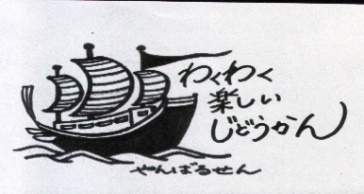 わくわく
楽しい
じどうかん
やんばるせん